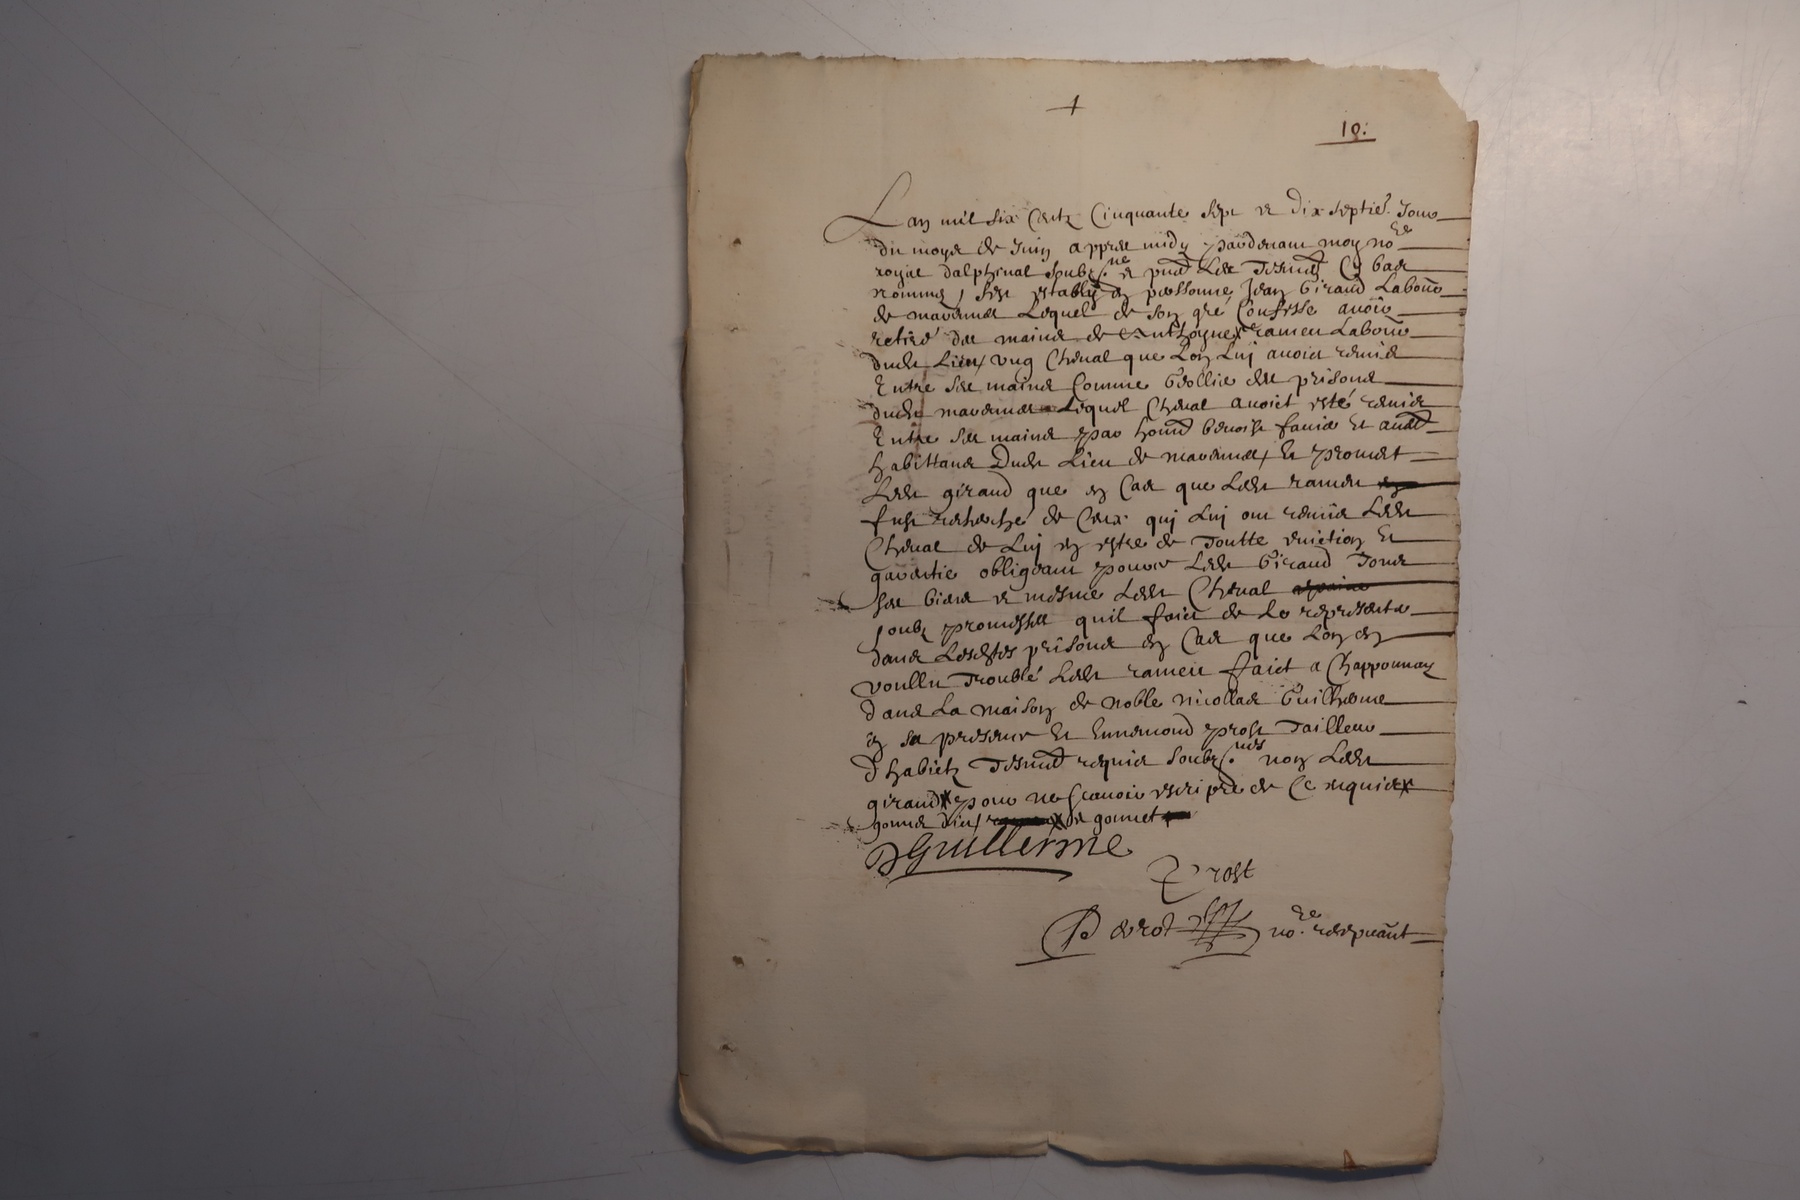 1
18.
Lan mil six Centz Cinquante sept et dix septie. Jour
du moys de Juin appres midy pardevant moy no.re
royal dalphinal soubz.ne et pnt Les Tesmt Cy bas
nommes, sest estably en personne Jean Giraud Labour
de marennes Lequel de son gré Confesse avoir
retiré des mains de Anthoyne rameu Labour
dudt Lieu, ung Cheval que Lon Luy avoict remis
Entre ses mains Comme Geollie des prisons
dudt marennes Lequel Cheval avoict esté remis
Entre ses mains par honnt benoist favie et
habittans Dudt Lieu de marennes, Et promet
Ledt giraud que en Cas que Ledt rameu
fust recherché de Ceux quj Luj ont remis Ledt
Cheval de Luj en estre de Toutte eviction Et
garentie obligeant pour Ledt Giraud Tous
ses biens et mesme Ledt Cheval
soubz promesses quil faict de Le represente
dans Lesdstes prisons en Cas que Lon en
voullu Troublé Ledt rameu faict a Chapponnay
dans La maison de noble nicollas Guilherme
en sa presence Et Ennemond prost Tailleur
dhabietz Tesmt requis soubz.nes non Ledt
giraud pour ne scavoir escripre de Ce requis
gonnet
DGuillerme
Prost
Perrot no.re recepvant